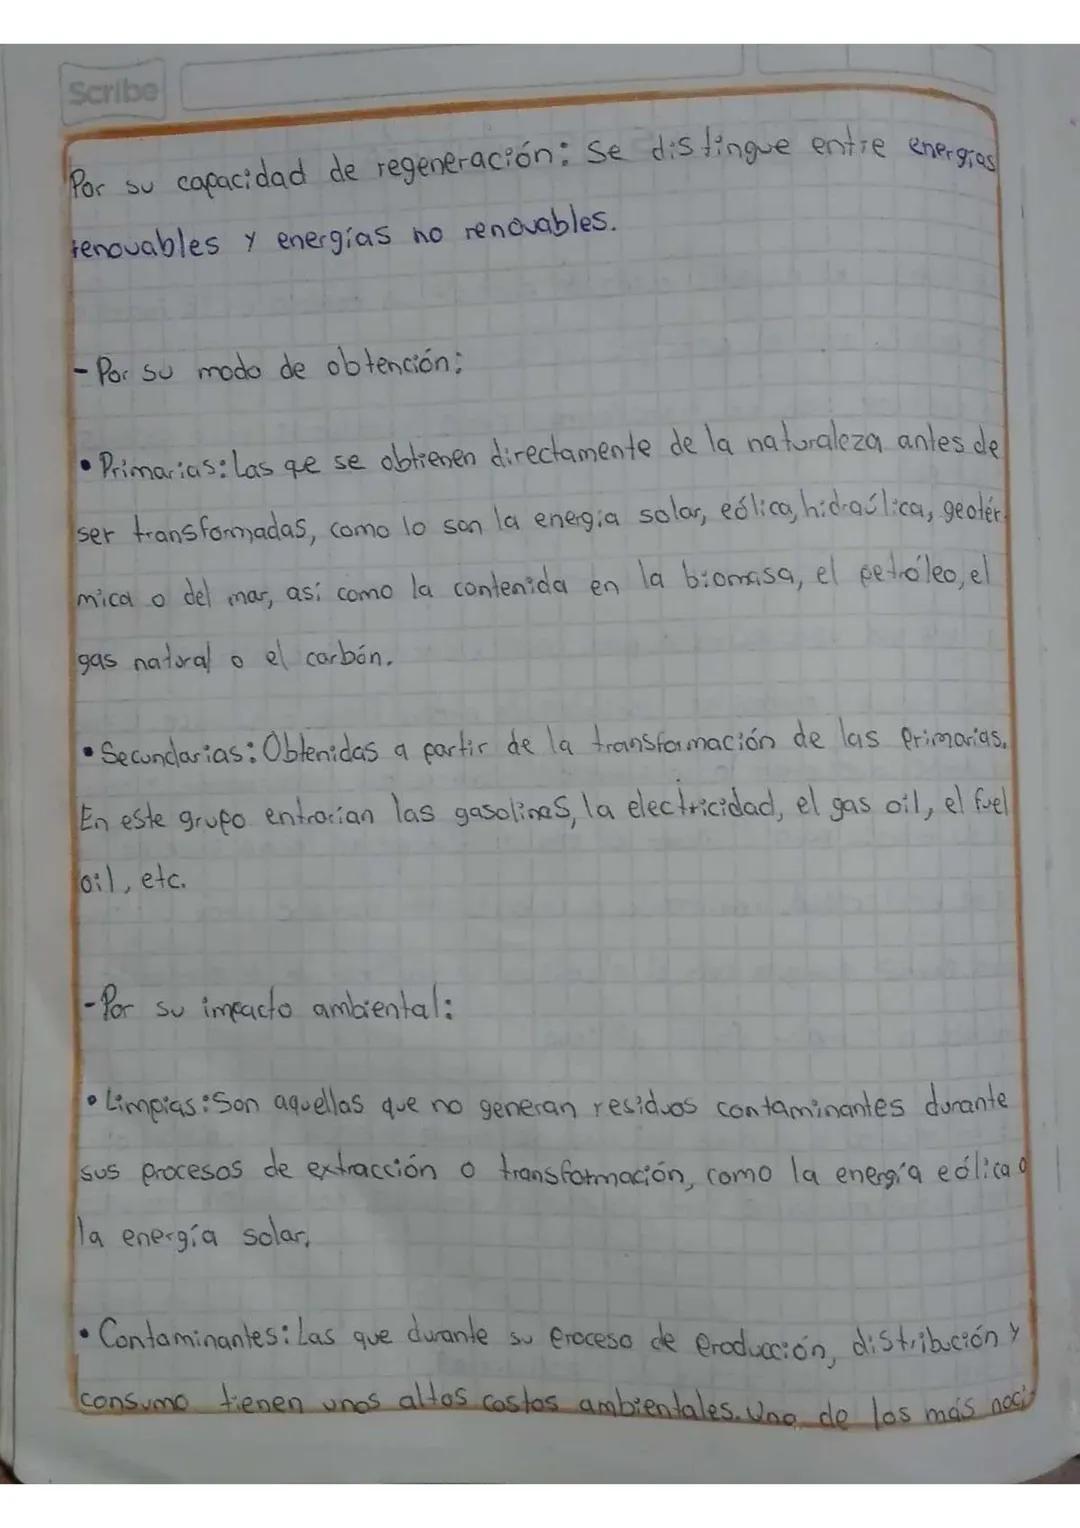 Scribe
Por su capacidad de regeneración: Se distingue entre energías
renovables y energías no renovables.
- Por su modo de obtención:
• Primarias: Las qe se obtienen directamente de la naturaleza antes de
ser transformadas, como lo son la energía solar, eólica, hidraúlica, geotér-
mica o del mar, así como la contenida en la biomasa, el petróleo, el
gas natural o el carbón.
• Secundarias: Obtenidas a partir de la transformación de las primarias.
En este grupo entrarían las gasolinas, la electricidad, el gas oil, el fuel
oil, etc.
- Por su impacto ambiental:
• Limpias: Son aquellas que no generan residuos contaminantes durante
sus procesos de extracción o transformación, como la energía eólica o
la energía solar.
• Contaminantes: Las que durante su proceso de producción, distribución y
consumo tienen unos altos costos ambientales. Una de las más noci